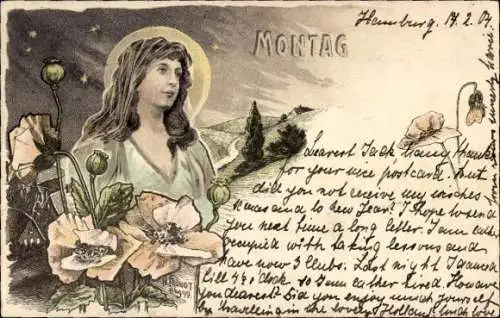 MONTAG
Hamburg. 14.2.04.
Dearest Jack many thanks
for your nice postcard. But
did you not receive my wishes
to Xmas and to New Year? I hope to send
you next time a long letter. I am rather
occupied with taking lessons and
have now 3 Clubs. Last night I danced
till 4½ o'clock so I am rather tired. How are
you dearest? Did you enjoy much yourself
by travelling in the lovely Holland? much love